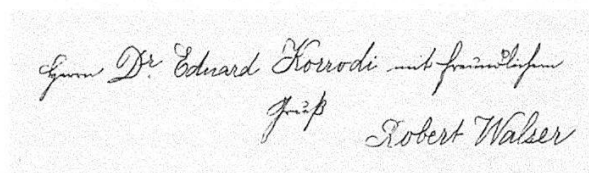 Herrn Dr. Eduard Korrodi mit freundlichem
Gruß
Robert Walser